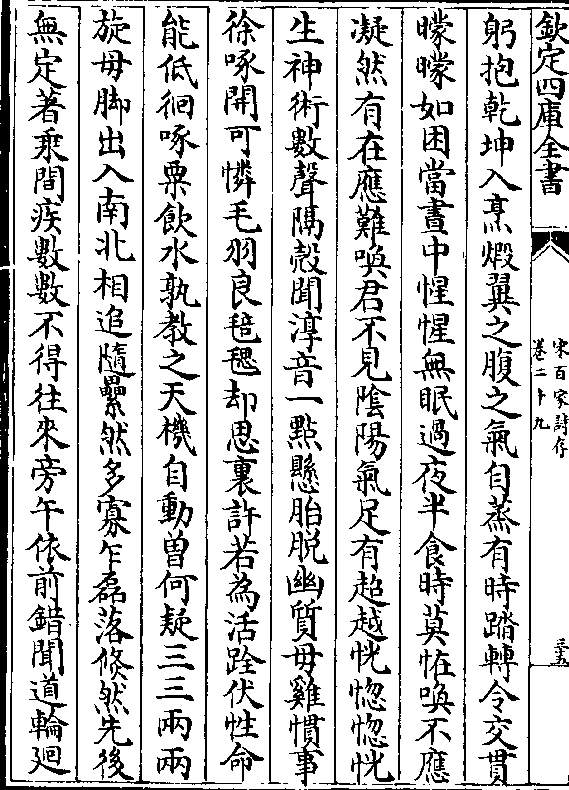 欽定四庫全書
宋百家詩存
卷二十九
三五
躬抱乾坤入烹煅翼之腹之氣自蒸有時踏轉令交貫
曚曚如困當晝中惺惺無眠過夜半食時莫怪喚不應
凝然有在應難喚君不見陰陽氣足有超越恍惚惚恍
生神術數聲隔殻聞淳音一點懸胎脱幽質毋雞慣事
徐啄開可憐毛羽良毰毸却思裏許若為活跧伏性命
能低徊啄粟飲水孰教之天機自動曽何疑三三兩兩
旋毋脚出入南北相追隨纍然多寡乍磊落倐然先後
無定著乘間疾數數不得往來旁午依前錯聞道輪廻